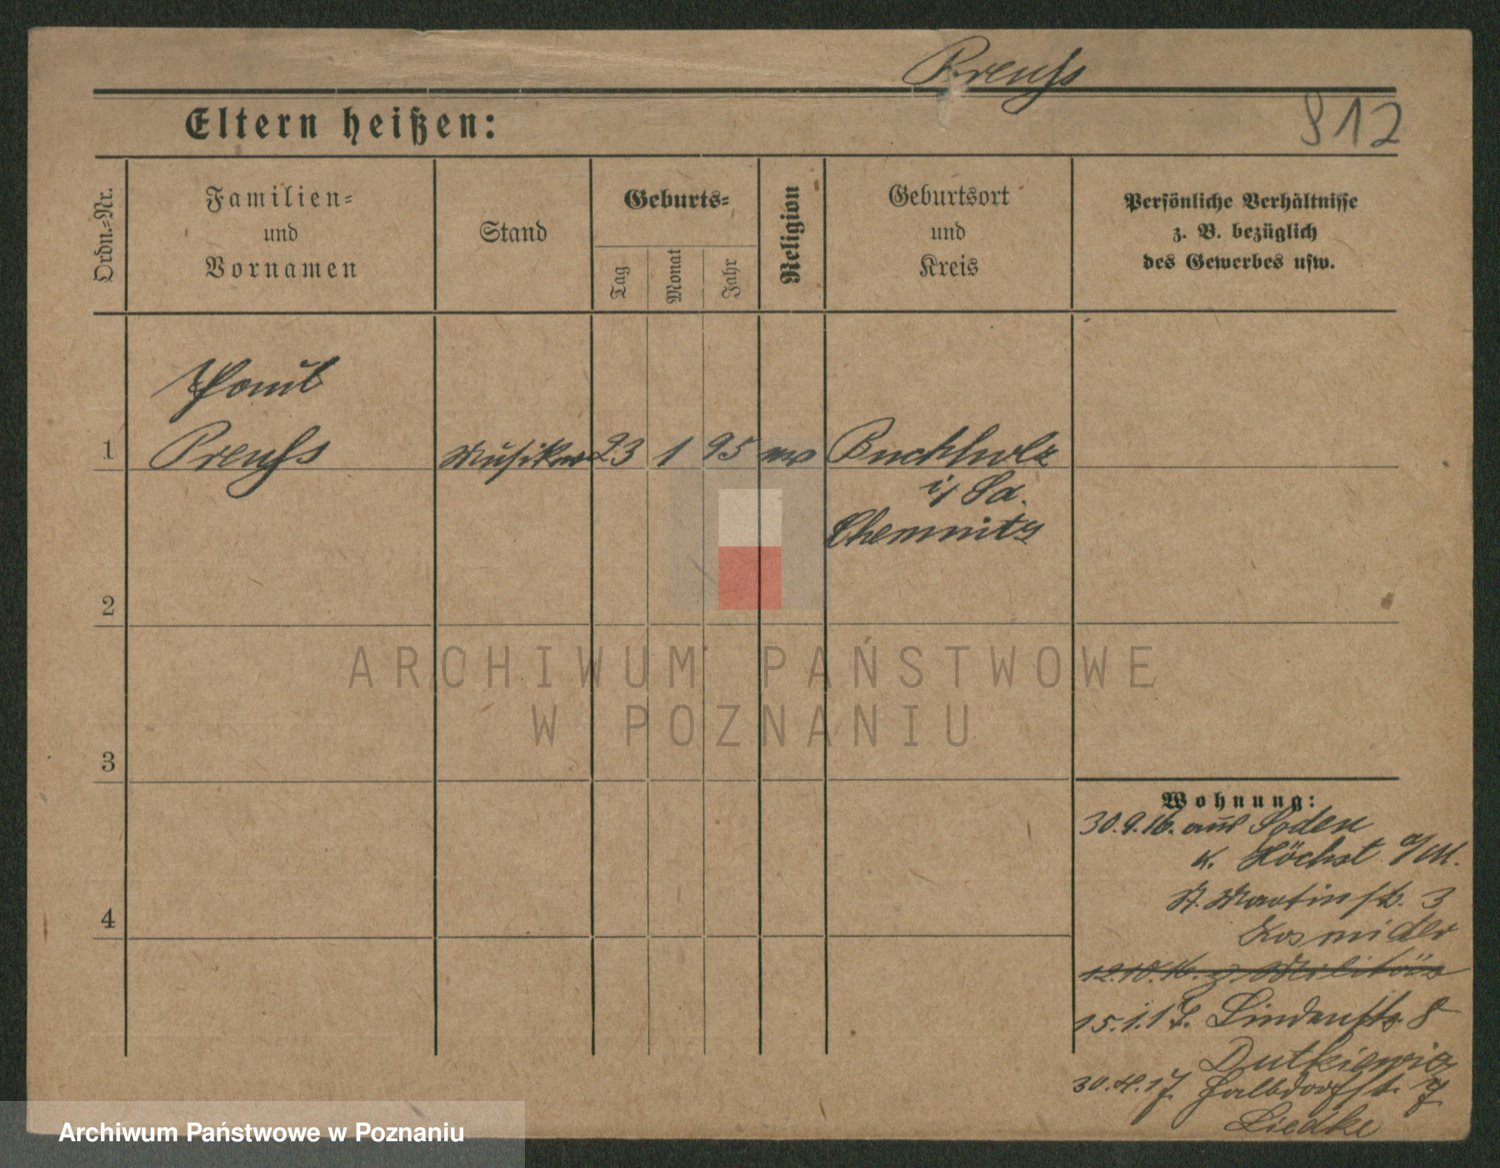 Preuß
912
Eltern heißen:
Ordn.-Nr.
Familien-
und
Vornamen
Stand
Geburts-
Tag
Monat
Jahr
Religion
Geburtsort
und
Kreis
Persönliche Verhältnisse
z. B. bezüglich
des Gewerbes usw.
Paul
1
Preuß Musiker 23 1 95 ev Buchholz
i/ Sa.
Chemnitz
2
3
4
Wohnung:
30.9.16. aus Soden
K. Höchst a/M.
St. Martinstr. 3
Kosmider
12.10.16. z. Militär
15.1.17. Lindenstr. 8
Dutkiewicz
30.4.17. Halbdorfstr. 7
Liedke
ARCHIWUM PAŃSTWOWE
W POZNANIU
Archiwum Państwowe w Poznaniu